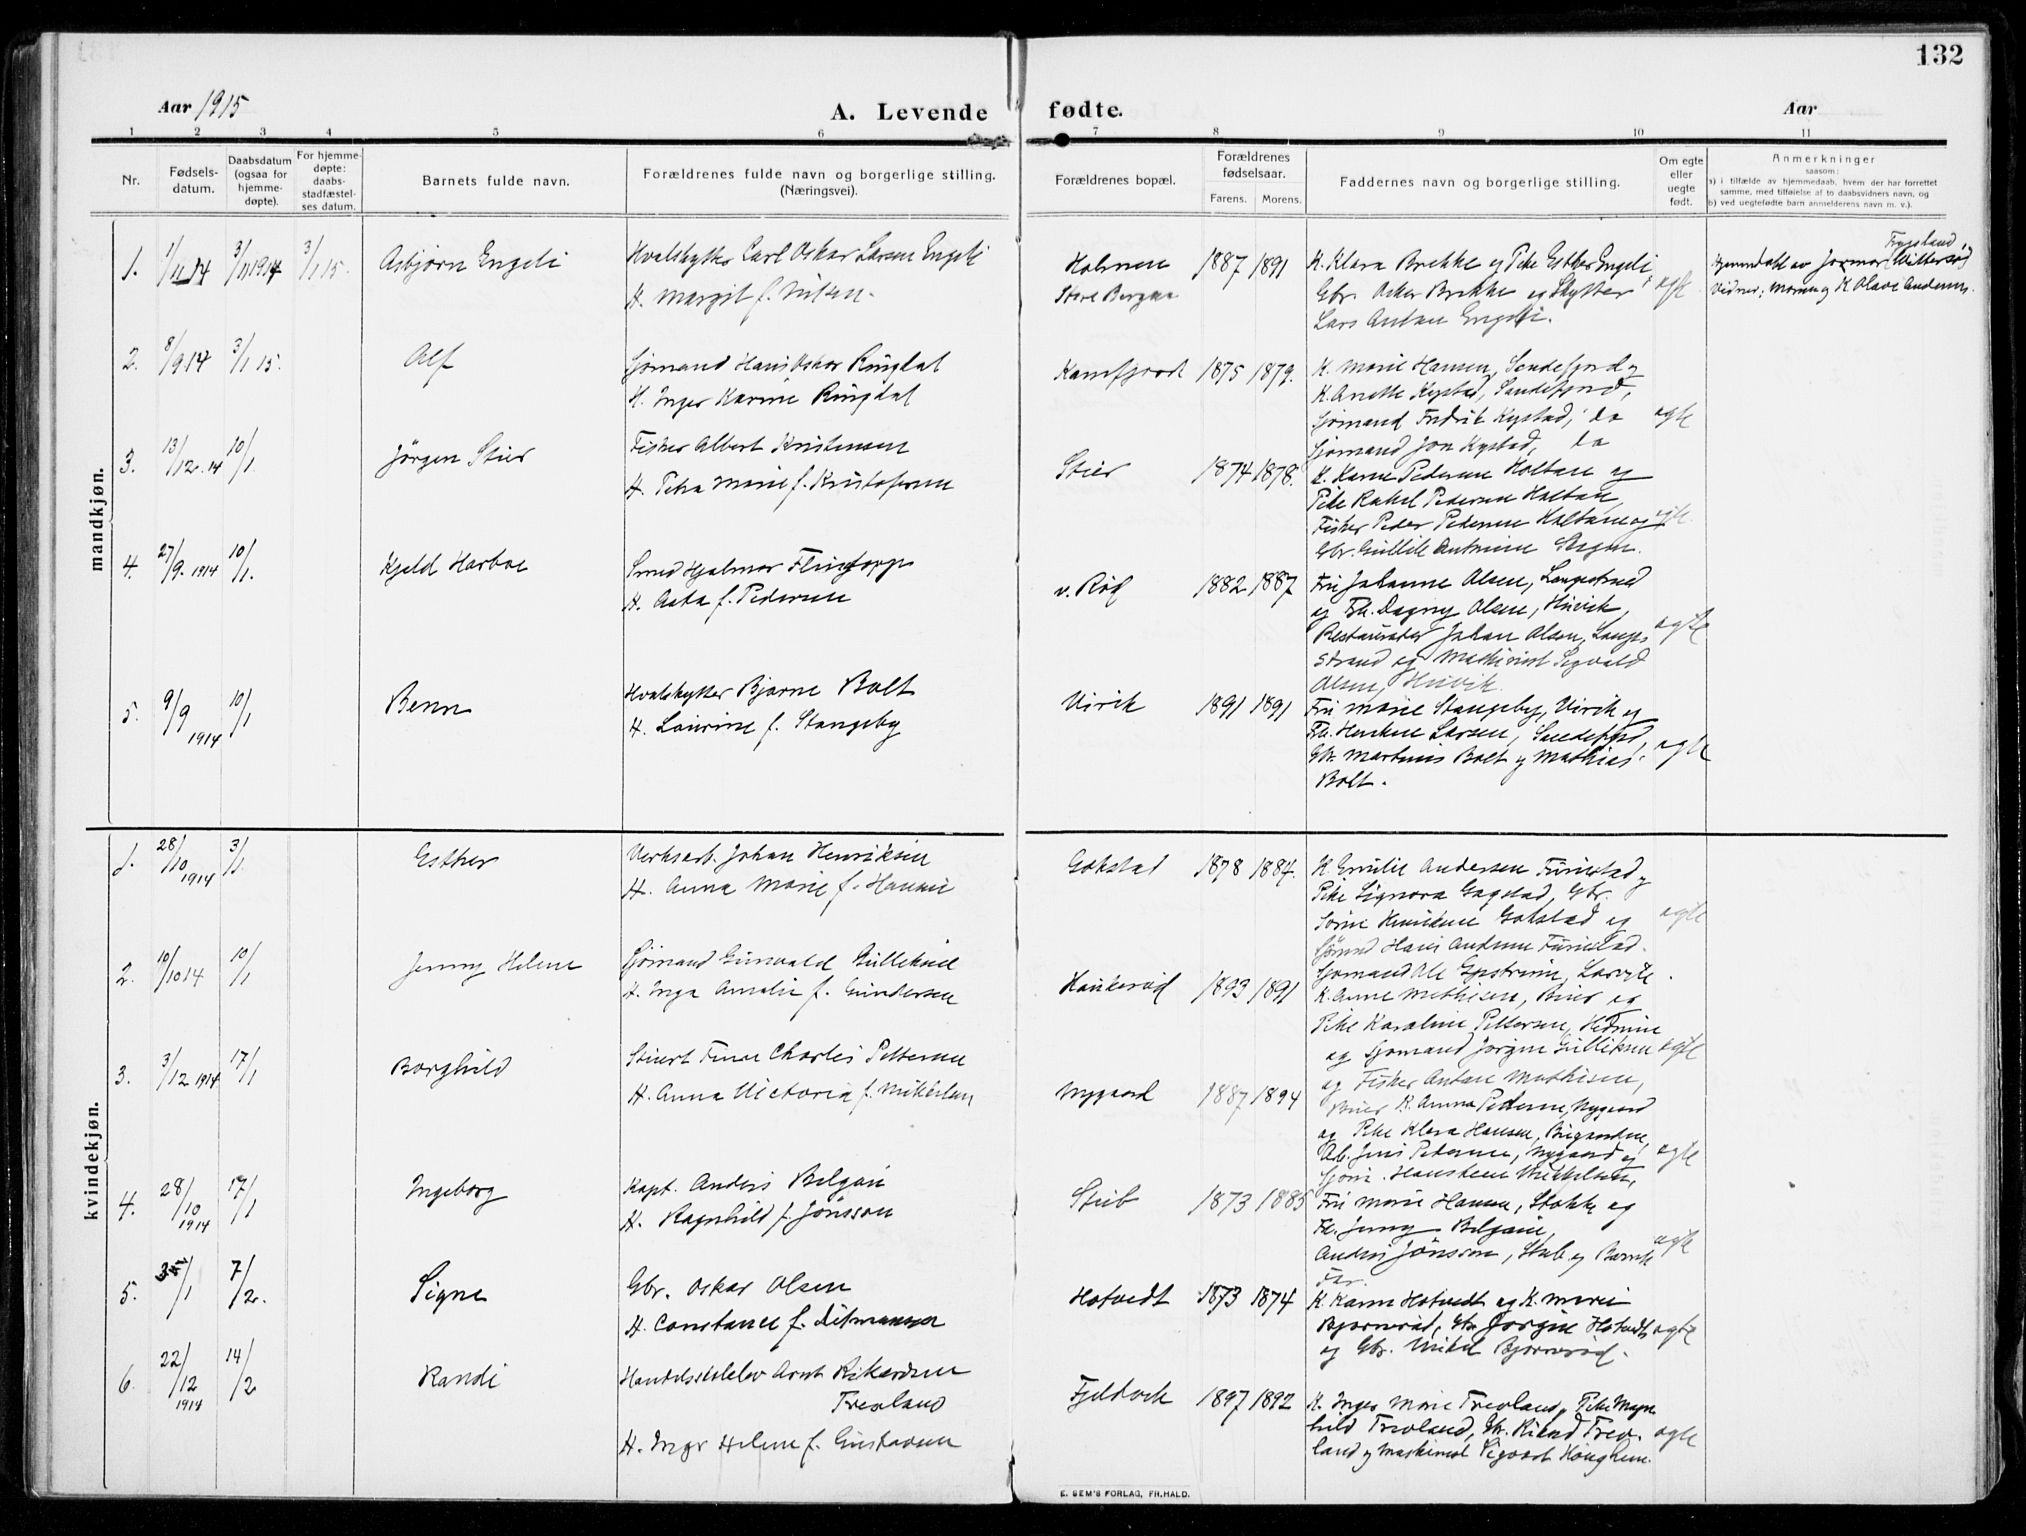 132
Aar 1915
A. Levende fødte.
Aar
1 2 3 4 5 6 7 8 9 10 11
Nr.
Fødsels-
datum.
Daabsdatum
(ogsaa for
hjemme-
døpte).
For hjemme-
døpte:
daabs-
stadfæstel-
ses datum.
Barnets fulde navn.
Forældrenes fulde navn og borgerlige stilling.
(Næringsvei).
Forældrenes bopæl.
Forældrenes
fødselsaar.
Farens. Morens.
Faddernes navn og borgerlige stilling.
Om egte
eller
uegte
født.
Anmerkninger
saasom:
a) i tilfælde av hjemmedaab, hvem der har forrettet
samme, med tilføielse af to daabsvidners navn, og
b) ved uegtefødte barn anmelderens navn m. v.).
mandkjøn.
1. 1/11 14 3/11 1914 3/1 15. Asbjørn Engeli
Hvalskytter Carl Oskar Larsen Engeli
H. Margit f. Nilsen.
Holmen
Store Bergan
1887 1891
K. Klara Brekke og Pike Esther Engeli,
Gbr. Oskar Brekke og Skytter
Lars Anton Engeli.
egte
Hjemmedøbt av Jormor
Vidner; Moren og K. Olave Andersen.
2. 8/9 14 3/1 15. Alf
Sjømand Hans Oskar Ringdal
H. Inger Karine Ringdal
Kamfjord 1875 1879.
K. Marie Hansen, Sandefjord og
K. Anette Kystad, Sandefjord,
Sjømand Fredrik Kystad, do
Sjømand Jon Kystad, do
egte
3. 13/12. 14 10/1. Jørgen Stier
Fisker Albert Kristensen
H. Petra Marie f. Kristofersen
Stier 1874 1878.
K. Karen Pedersen Holtan og
Pike Rakel Pedersen Holtan,
Fisker Peder Pedersen Holtan og
Gbr. Gullik Antonsen
egte
4. 27/9. 1914 10/1. Kjeld Harboe
Smed Hjalmar Flintorp
H. Asta f. Pedersen
v. Rød 1882 1887
Fru Johanne Olsen, Langestrand
og Frk. Dagny Olsen, Huvik,
Restauratør Johan Olsen, Lange-
strand og Maskinist Sigvald
Olsen, Huvik.
egte
5. 9/9 1914 10/1 Benn
Hvalskytter Bjarne Bolt
H. Laurine f. Stangeby
Virik 1891 1891
Fru Marie Stangeby, Virik og
Frk. Larsen, Sandefjord,
Gbr. Martinus Bolt og Mathias
Bolt.
egte
kvindekjøn.
1. 28/10 1914 3/1. Esther
Verksarb. Johan Henriksen
H. Anna Marie f. Hansen
Gokstad 1878 1884.
K. Emilie Andersen Furustad og
Pike Signora Gogstad, Gbr.
Henriksen Gokstad og
Sjømd Hans Andersen Furustad.
egte
2. 10/10 14 10/1 Jenny Helene
Sjømand Gunvald Gulliksen
H. Inga Amalie f. Gundersen
Haukerød 1893 1891
Sjømand Ole
K. Anne Mathisen, og
Pike Karoline Pettersen,
og Sjømand Jørgen Gulliksen
og Fisker Anton Mathisen,
egte
3. 3/12 1914 17/1 Borghild
Stuert Charles Pettersen
H. Anna Victoria f. Mikkelsen
Nygaard 1887 1894
K. Anna Pedersen, Nygaard
og Pike Klara Hansen,
Arb. Jens Pedersen, Nygaard og
Sjøm. Mikkelsen,
egte
4. 28/10 1914 17/1 Ingeborg
Kapt. Anders Belgau
H. Ragnhild f. Jönsson
Stub 1873 1885
Fru Marie Hansen, Stokke og
Fr. Jenny Belgau,
Anders Jönsson, Stub og Barnets
Far.
egte
5. 7/2. Signe
Gbr. Oskar Olsen
H. Constance f. Ditmansen
Hotvedt 1873 1874
K. Karen Hotvedt og K. Marie
Bjørnerød, Gbr. Jørgen Hotvedt,
og Gbr. Mikal Bjørnerød.
egte
6. 22/12 1914 14/2 Randi
Handelsskolelev Arnt Rikardsen
Trevland
H. Inger Helene f. Gustavsen
Fjeldvik 1897 1892
K. Inger Marie Trevland, Pike Magn-
hild Trevland, Gbr. Rikard Trev-
land og Maskinist Sigvart Haughem.
egte
E. SEM'S FORLAG, FR.HALD.